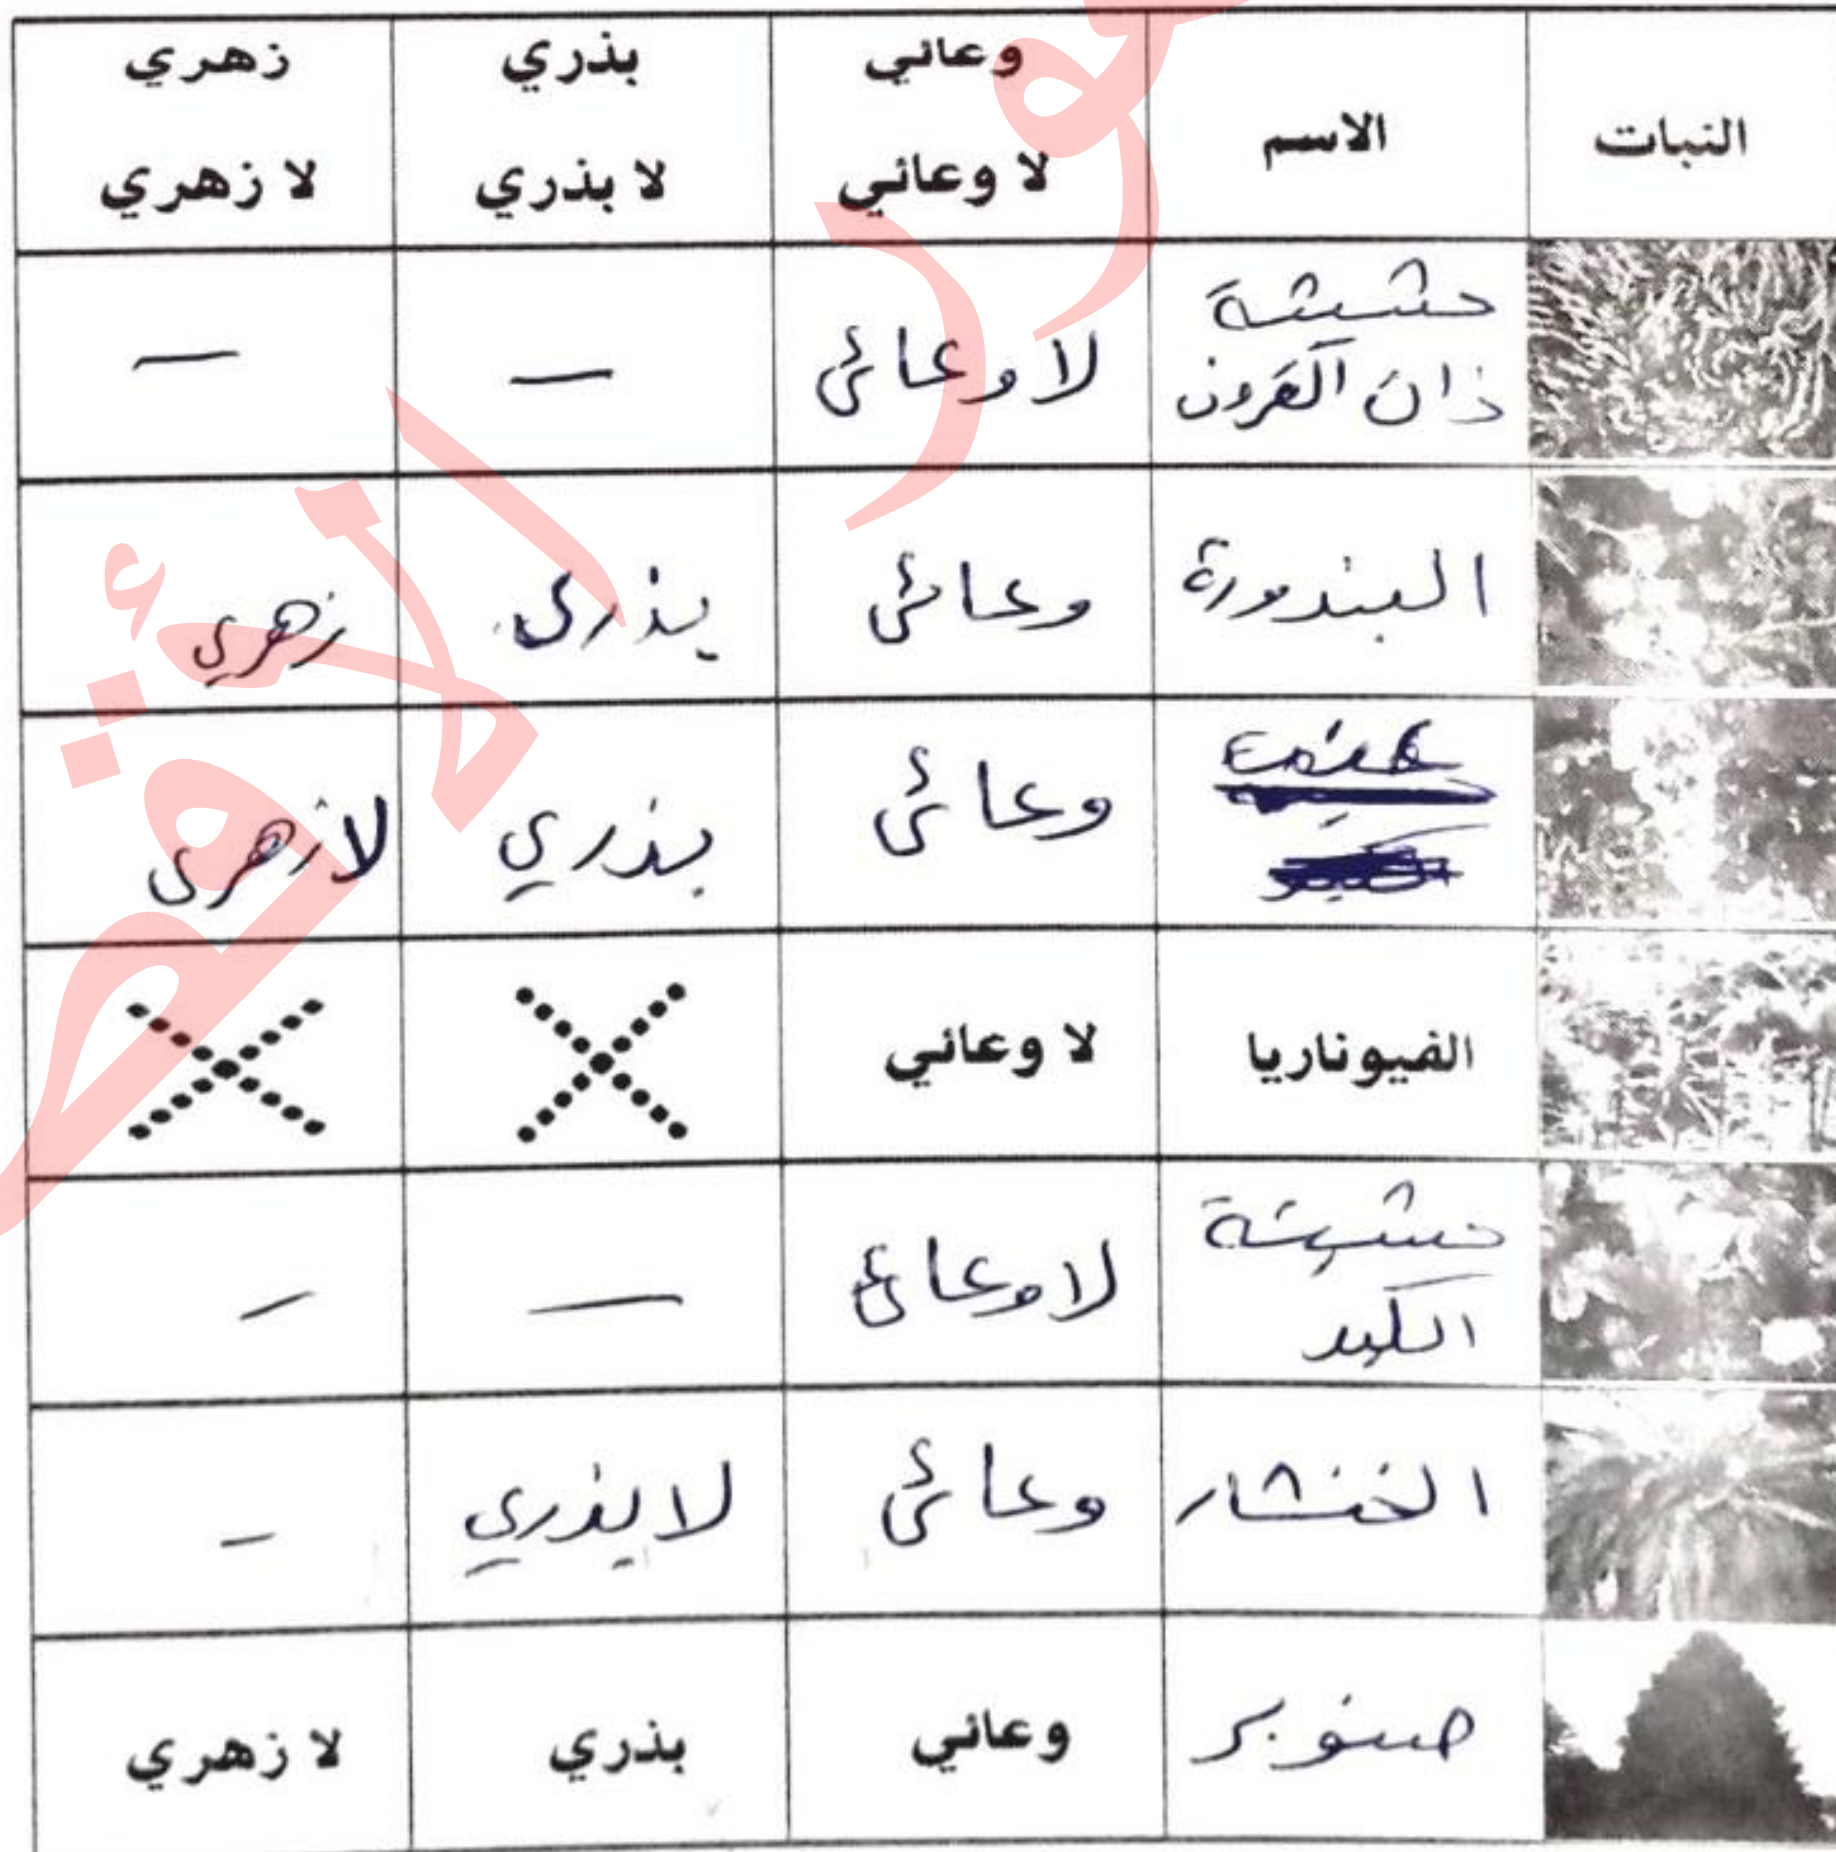 النبات الاسم وعائي بذري زهري
لا وعائي لا بذري لا زهري
حشيشة
ذات القرون لا وعائي — —
البندورة وعائي بذري زهري
وعائي بذري لا زهري
الفيوناريا لا وعائي
حشيشة
الكبد لا وعائي — —
الخنشار وعائي لا بذري —
صنوبر وعائي بذري لا زهري